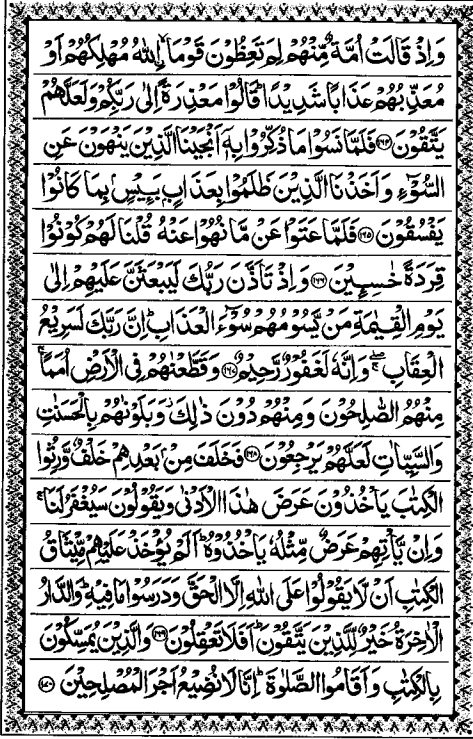 وَاِذْ قَالَتْ اُمَّةٌ مِّنْهُمْ لِمَ تَعِظُوْنَ قَوْمَا ۙ اللّٰهُ مُهْلِكُهُمْ اَوْ
مُعَذِّبُهُمْ عَذَابًا شَدِيْدًا ؕ قَالُوْا مَعْذِرَةً اِلٰى رَبِّكُمْ وَلَعَلَّهُمْ
يَتَّقُوْنَ ﴿۱۶۴﴾ فَلَمَّا نَسُوْا مَا ذُكِّرُوْا بِهٖۤ اَنْجَيْنَا الَّذِيْنَ يَنْهَوْنَ عَنِ
السُّوْٓءِ وَاَخَذْنَا الَّذِيْنَ ظَلَمُوْا بِعَذَابٍۭ بَـِٕيْسٍۭ بِمَا كَانُوْا
يَفْسُقُوْنَ ﴿۱۶۵﴾ فَلَمَّا عَتَوْا عَنْ مَّا نُهُوْا عَنْهُ قُلْنَا لَهُمْ كُوْنُوْا
قِرَدَةً خٰسِـِٕيْنَ ﴿۱۶۶﴾ وَاِذْ تَاَذَّنَ رَبُّكَ لَيَبْعَثَنَّ عَلَيْهِمْ اِلٰى
يَوْمِ الْقِيٰمَةِ مَنْ يَّسُوْمُهُمْ سُوْٓءَ الْعَذَابِ ؕ اِنَّ رَبَّكَ لَسَرِيْعُ
الْعِقَابِ ۖۚ وَاِنَّهٗ لَغَفُوْرٌ رَّحِيْمٌ ﴿۱۶۷﴾ وَقَطَّعْنٰهُمْ فِى الْاَرْضِ اُمَمًا ۚ
مِنْهُمُ الصّٰلِحُوْنَ وَمِنْهُمْ دُوْنَ ذٰلِكَ ۫ وَبَلَوْنٰهُمْ بِالْحَسَنٰتِ
وَالسَّيِّاٰتِ لَعَلَّهُمْ يَرْجِعُوْنَ ﴿۱۶۸﴾ فَخَلَفَ مِنْۢ بَعْدِهِمْ خَلْفٌ وَّرِثُوا
الْكِتٰبَ يَاْخُذُوْنَ عَرَضَ هٰذَا الْاَدْنٰى وَيَقُوْلُوْنَ سَيُغْفَرُ لَنَا ۚ
وَاِنْ يَّاْتِهِمْ عَرَضٌ مِّثْلُهٗ يَاْخُذُوْهُ ؕ اَلَمْ يُؤْخَذْ عَلَيْهِمْ مِّيْثَاقُ
الْكِتٰبِ اَنْ لَّا يَقُوْلُوْا عَلَى اللّٰهِ اِلَّا الْحَقَّ وَدَرَسُوْا مَا فِيْهِ ؕ وَالدَّارُ
الْاٰخِرَةُ خَيْرٌ لِّلَّذِيْنَ يَتَّقُوْنَ ؕ اَفَلَا تَعْقِلُوْنَ ﴿۱۶۹﴾ وَالَّذِيْنَ يُمَسِّكُوْنَ
بِالْكِتٰبِ وَاَقَامُوا الصَّلٰوةَ ؕ اِنَّا لَا نُضِيْعُ اَجْرَ الْمُصْلِحِيْنَ ﴿۱۷۰﴾